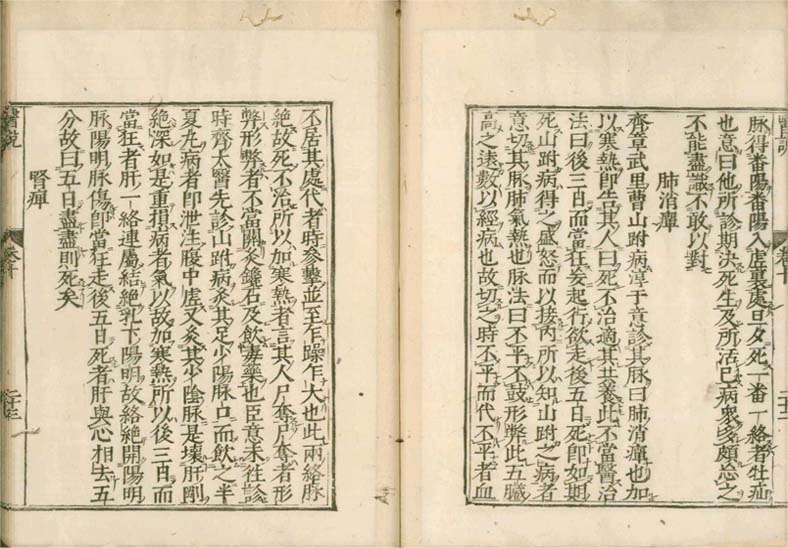 脉得番陽番陽入虚裏處旦夕死一番一絡者牡疝
也意曰他所診期決死生及所活已病衆多頗忘之
不能盡識不敢以對
肺消癉
齊章武里曹山跗病淳于意診其脉曰肺消癉也加
以寒熱即告其人曰死不治適其共養此不當醫治
法曰後三日而當狂妄起行欲走後五日死即如期
死山跗病得之盛怒而以接内所以知山跗之病者
意切其脉肺氣熱也脉法曰不平不鼓形弊此五臟
高之遠數以經病也故切之時不平而代不平者血
不居其處代者時參擊並至乍躁乍大也此兩絡脉
絶故死不治所以加寒熱者言其人尸奪尸奪者形
弊形弊者不當關灸鑱石及飲毒藥也臣意未往診
時齊太醫先診山跗病灸其足少陽脉口而飲之半
夏丸病者即泄注腹中虚又灸其少陰脉是壞肝剛
絶深如是重損病者氣以故加寒熱所以後三日而
當狂者肝一絡連屬結絶乳下陽明故絡絶開陽明
脉陽明脉傷即當狂走後五日死者肝與心相去五
分故曰五日盡盡則死矣
腎癉
醫説
卷十
二十三